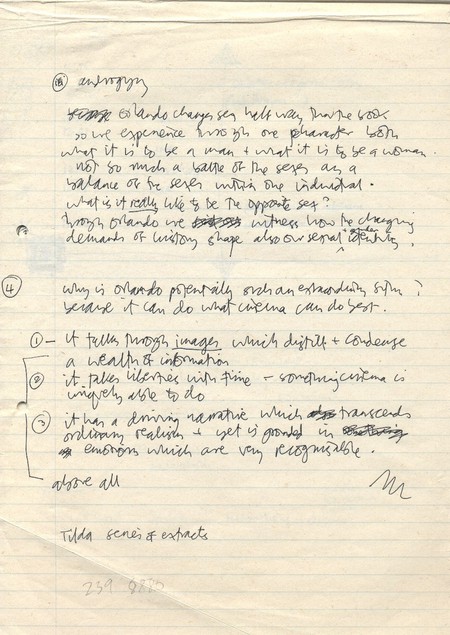 androgyny
Orlando changes sex half way thru the book.
so we experience through one character both
what it is to be a man + what it is to be a woman.
not so much a battle of the sexes as a
balance of the sexes within one individual.
what is it really like to be the opposite sex?
through Orlando we witness how the changing
demands of history shape also our sexual + gender identity.
④ why is Orlando potentially such an extraordinary film?
because it can do what cinema can do best.
① - it talks through images which distill + condense
a wealth of information
② it takes liberties with time - something cinema is
uniquely able to do
③ it has a driving narrative which transcends
ordinary realism + yet is grounded in
emotions which are very recognisable.
above all
Tilda series of extracts